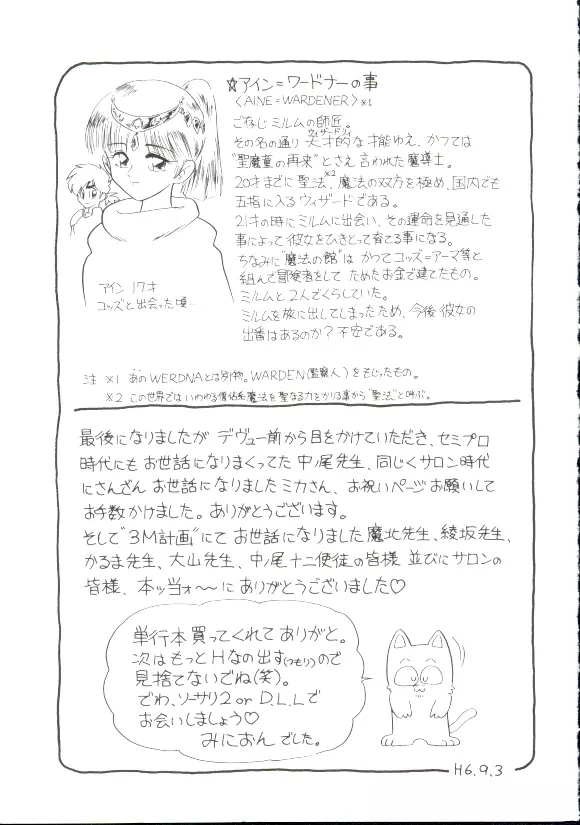 ☆アイン=ワードナーの事
〈AINE=WARDENER〉※1
ごなじミルムの師匠。
その名の通り天才的な才能ゆえ、かつては
“聖魔童の再来”とさえ言われた魔導士。
20才までに聖法※2、魔法の双方を極め、国内でも
五指に入るウィザードである。
21才の時にミルムに出会い、その運命を見通した
事によって彼女をひきとって育てる事になる。
ちなみに“魔法の館”は かつてコッズ=アーマ等と
組んで冒険者をして ためたお金で建てたもの。
ミルムと2人でくらしていた。
ミルムを旅に出してしまったため、今後彼女の
出番はあるのか?不安である。
アイン 17才
コッズと出会った頃…
注 ※1 あのWERDNAとは別物。WARDEN(監察人)をもじったもの。
※2 この世界では いわゆる僧侶系魔法を聖なる力をかりる事から“聖法”と呼ぶ。
最後になりましたが デヴュー前から目をかけていただき、セミプロ
時代にも お世話になりまくってた 中ノ尾先生、同じくサロン時代
にさんざん お世話になりました ミカさん、お祝いページお願いして
お手数かけました。ありがとうございます。
そして“3M計画”にて お世話になりました 魔北先生、綾坂先生、
かるま先生、大山先生、中ノ尾十二使徒の皆様 並びにサロンの
皆様、本ッ当ォ〜〜に ありがとうございました♡
単行本買ってくれて ありがと。
次はもっとHなの出す(つもり)ので
見捨てないでね(笑)。
でわ、ソーサリ2 or D.L.Lで
お会いしましょう♡
みにおん でした。
H6.9.3